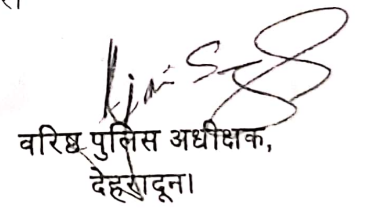 वरिष्ठ पुलिस अधीक्षक,
देहरादून।